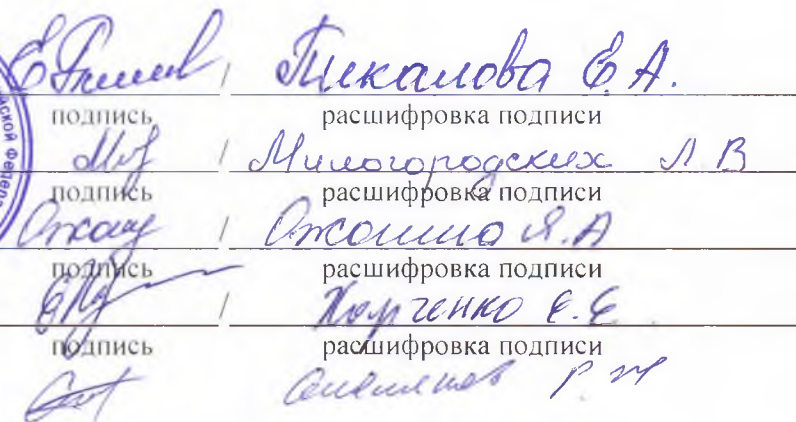 / Пикалова Е.А.
подпись расшифровка подписи
/ Милогородских Л В
подпись расшифровка подписи
/ Я.А
подпись расшифровка подписи
/ Харченко Е.Е
подпись расшифровка подписи
Р.Ж